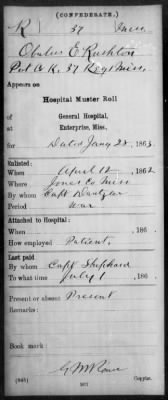 (CONFEDERATE.)
R 37 Miss.
Obulus E Rushton
Pvt Co K. 37 Reg't Miss.
Appears on
Hospital Muster Roll
of General Hospital,
at Enterprise, Miss.,
for Dated Jany 28, 1863
Enlisted:
When April 12, 1862
Where Jones Co Miss
By whom Capt Dantzler
Period War
Attached to Hospital:
When , 186 .
How employed Patient
Last paid
By whom Capt Shephard
To what time July 1, 186 .
Present or absent Present
Remarks:
Book mark:
G M Rowe
(848) Copyist.